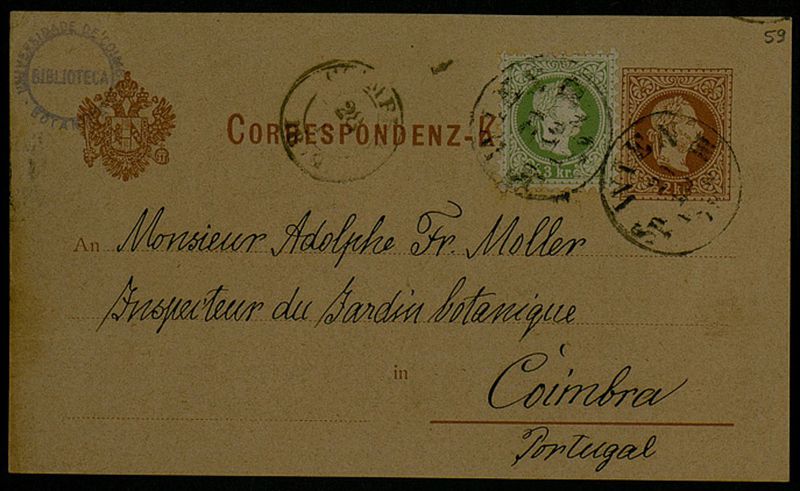 59
UNIVERSIDADE DE COIMBRA
BIBLIOTECA
CORRESPONDENZ-K
3 kr.
2 kr.
WIEN
An Monsieur Adolphe Fr. Moller
Inspecteur du Jardin botanique
in Coimbra
Portugal